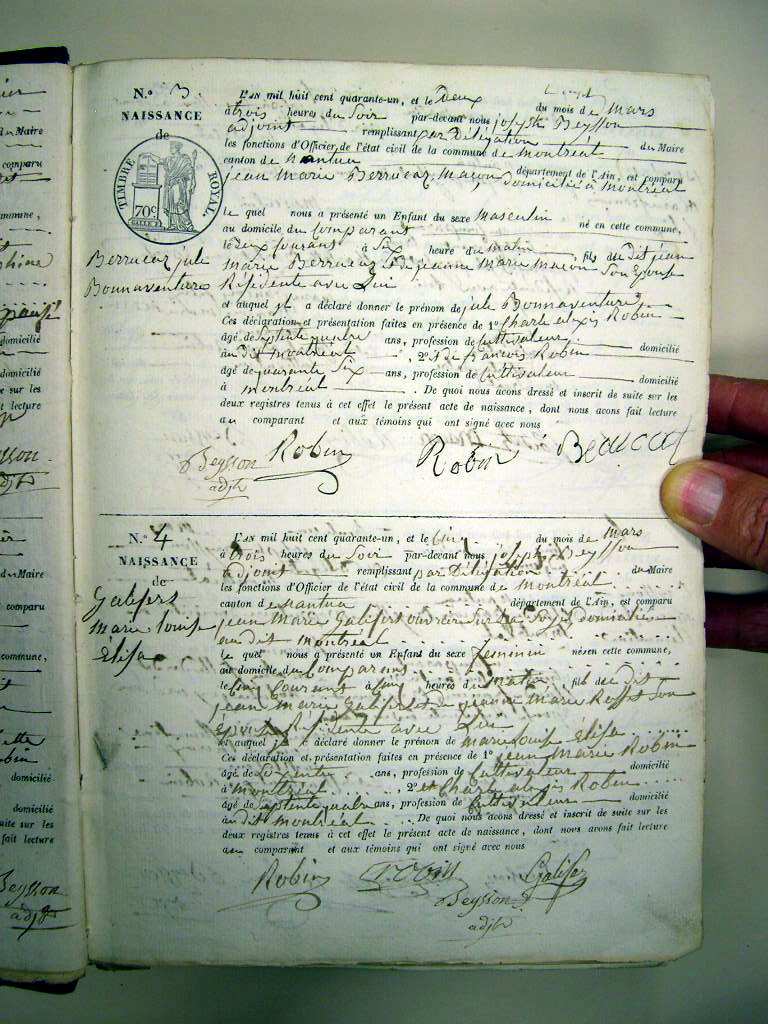 N.° 3.
NAISSANCE
de
TIMBRE ROYAL
70c
Berrucaz jule
Bonnaventure
L'AN mil huit cent quarante-un, et le Deux du mois de mars
à trois heures du Soir par-devant nous joseph Beysson
adjoint remplissant par Délégation du Maire
les fonctions d'Officier de l'état civil de la commune de montréal
canton de nantua département de l'Ain, est comparu
jean marie Berrucaz maçon Domicilié à montréal
le quel nous a présenté un Enfant du sexe masculin né en cette commune,
au domicile du Comparant
le deux courant à Six heure du matin, fils du dit jean
marie Berrucaz & de jeanne marie macon Son Epouse
Résidente avec Lui
et auquel il a déclaré donner le prénom de jule Bonnaventure
Ces déclaration et présentation faites en présence de 1° Charle alexis Robin
âgé de Septente quatre ans, profession de Cultivateur domicilié
au Dit montréal, 2° & de francois Robin
âgé de quarante Six ans, profession de Cultivateur domicilié
à montréal. De quoi nous avons dressé et inscrit de suite sur les
deux registres tenus à cet effet le présent acte de naissance, dont nous avons fait lecture
au comparant et aux témoins qui ont signé avec nous
Beysson Robin Robin
adjt
N.° 4
NAISSANCE
de
Galifers
marie louise
Elisa
L'AN mil huit cent quarante-un, et le Cinq du mois de mars
à trois heures du Soir par-devant nous joseph Beysson
adjoint remplissant par Délégation du Maire
les fonctions d'Officier de l'état civil de la commune de montréal
canton de nantua département de l'Ain, est comparu
jean marie Galifert ouvrier Sur La Soye domicilié
au dit montréal
le quel nous a présenté un Enfant du sexe feminin né en cette commune,
au domicile du Comparant
le Cinq Courant à Cinq heures du matin, fils du dit
jean marie Galifers et de jeanne marie Son
Epouse Résidente avec Lui
et auquel il a déclaré donner le prénom de marie louise Elisa
Ces déclaration et présentation faites en présence de 1° jean marie Robin
âgé de ans, profession de Cultivateur domicilié
à montréal 2° et Charle alexis Robin
âgé de Septente quatre ans, profession de Cultivateur domicilié
au dit montréal De quoi nous avons dressé et inscrit de suite sur les
deux registres tenus à cet effet le présent acte de naissance, dont nous avons fait lecture
au comparant et aux témoins qui ont signé avec nous
Robin Galifer
Beysson
adjt